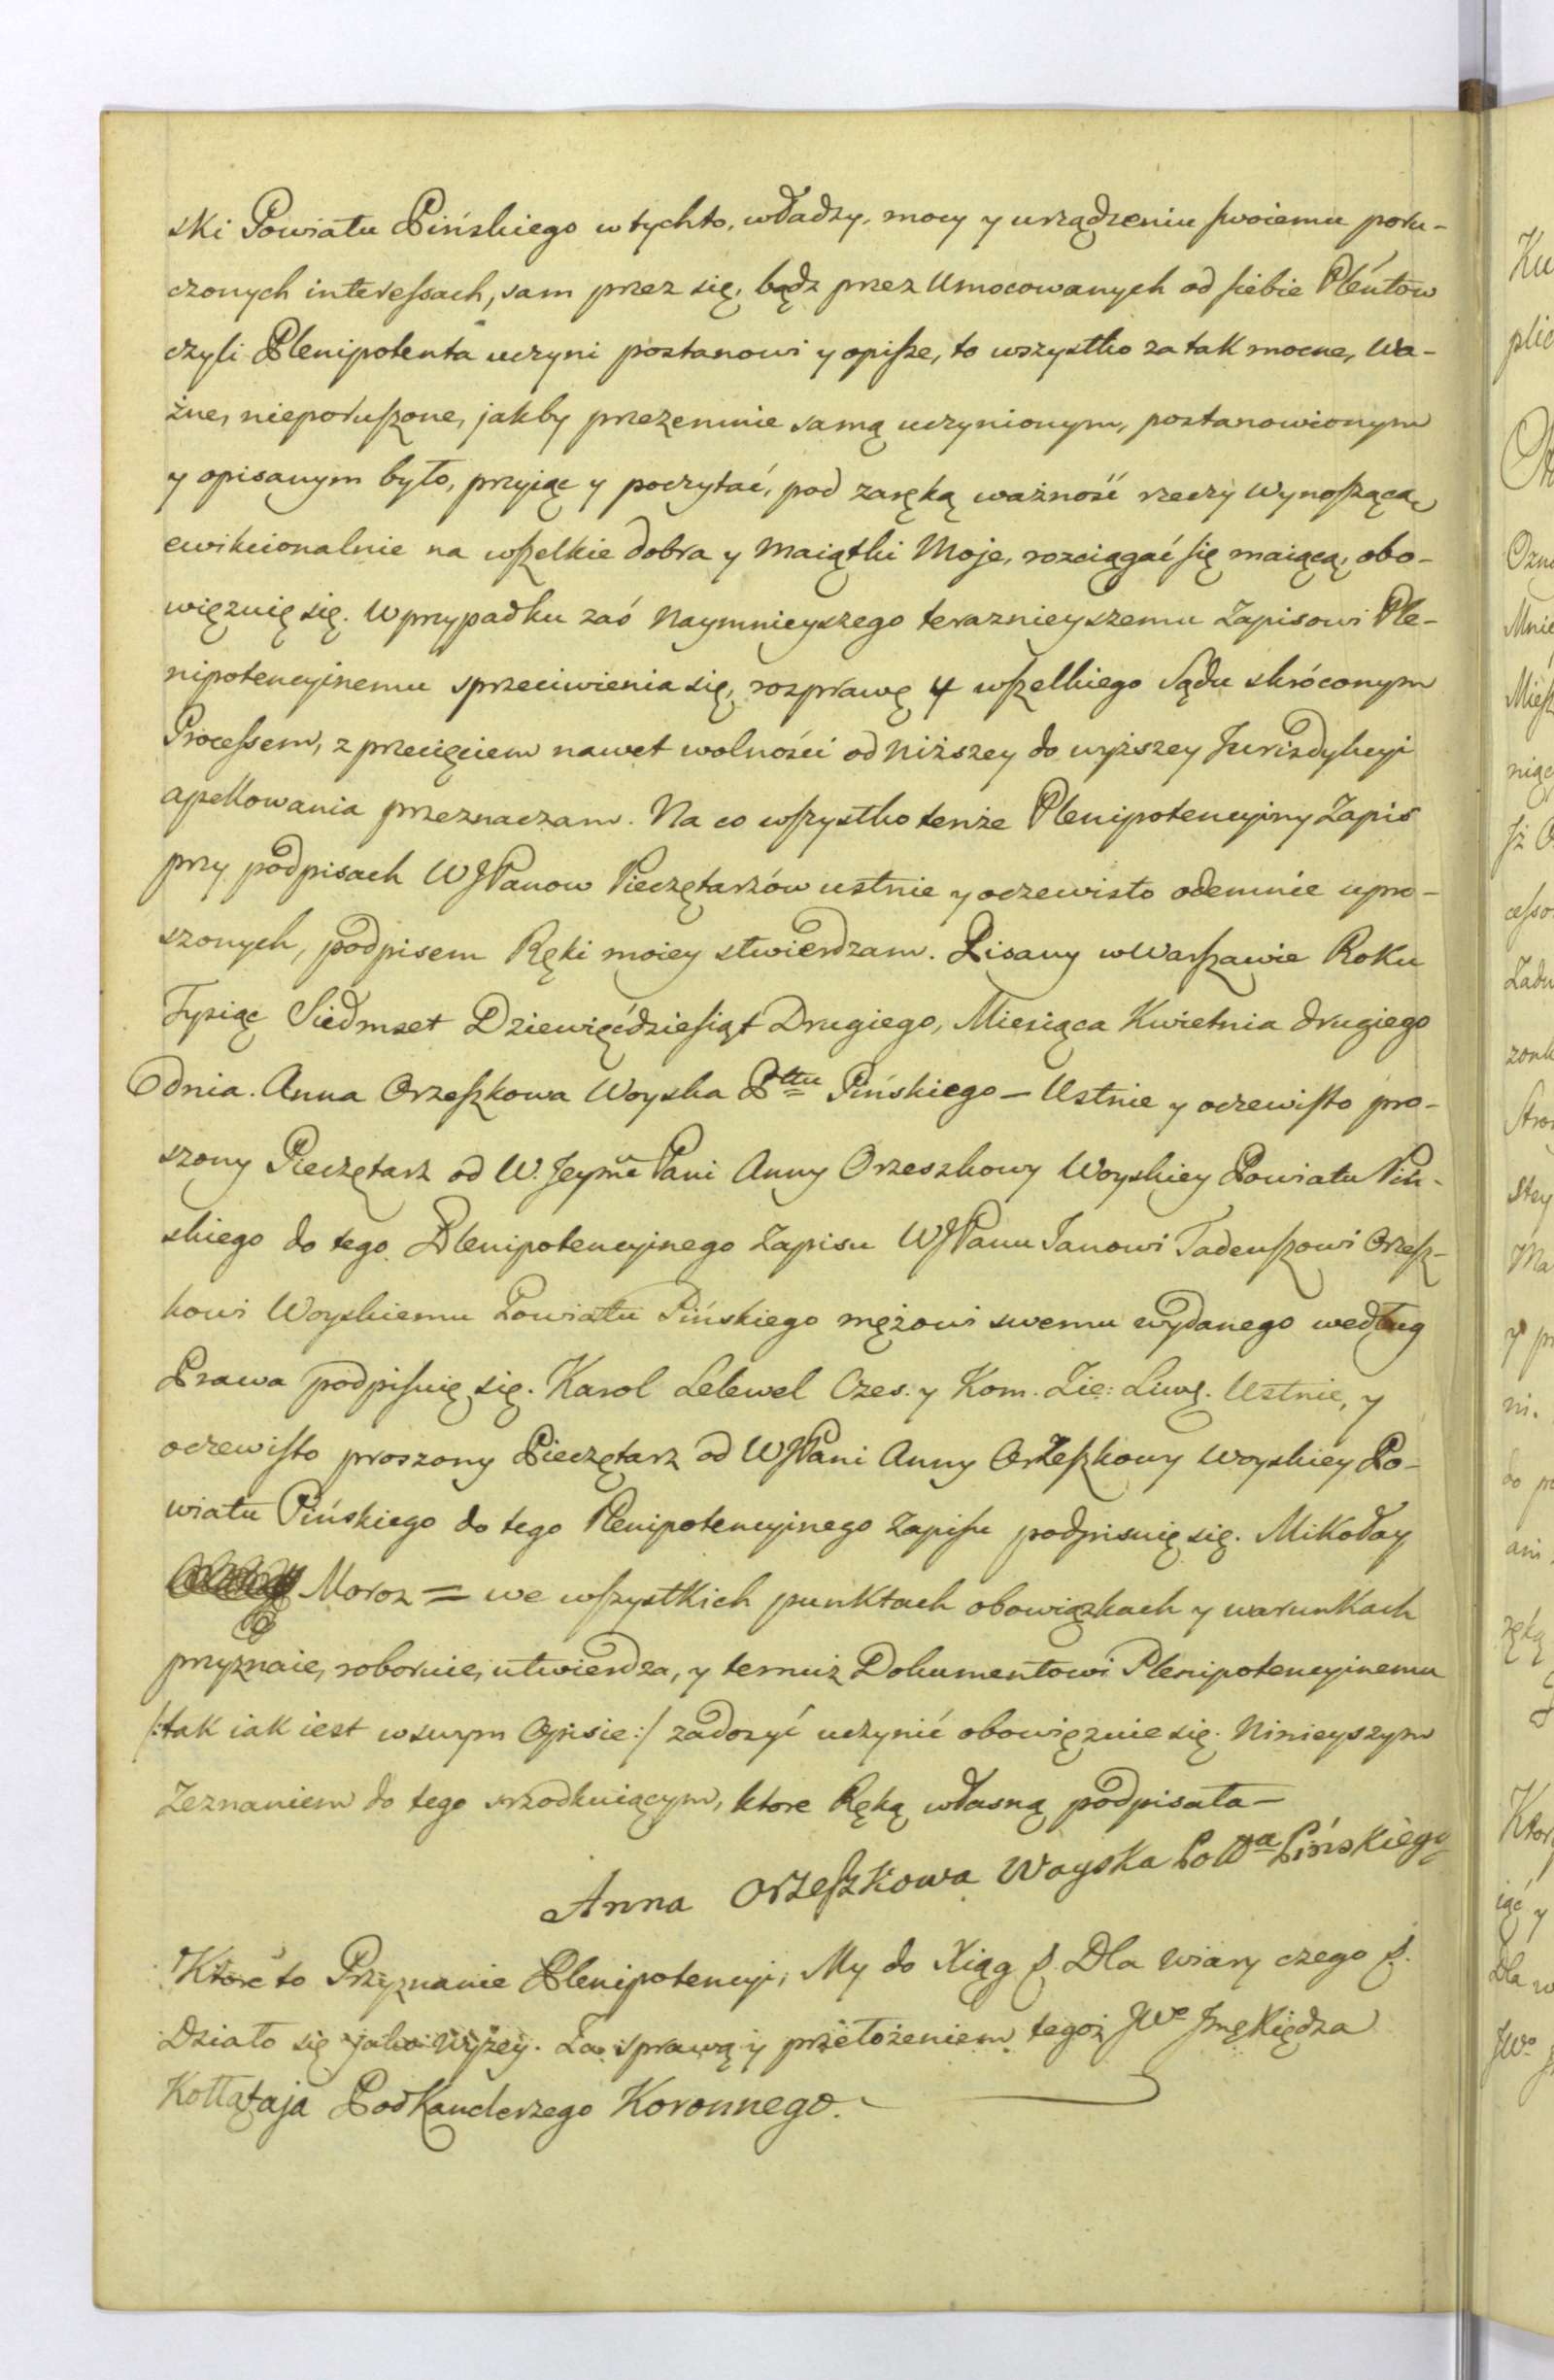 ski Powiatu Pińskiego w tychto, władzy, mocy y urządzeniu swoiemu poru-
czonych interessach, sam przez się, bądz przez Umocowanych od siebie Pleńtow
czyli Plenipotenta uczyni postanowi y opisze, to wszystko za tak mocne, Wa-
żne, nieporuszone, jakby przezemnie samą uczynionym, postanowionym
y opisanym było, przyiąc y poczytać, pod zaręką ważność rzeczy Wynoszącą,
ewikcionalnie na wszelkie dobra y Maiątki Moje, rozciągać się maiącą, obo-
więzuię się. W przypadku zaś Naymnieyszego teraznieyszemu Zapisowi Ple-
nipotencyjnemu sprzeciwienia się, rozprawę u wszelkiego Sądu skróconym
Processem, z przecięciem nawet wolności od Niższey do wyższey Jurisdykcyi
apellowania przeznaczam. Na co wszystko tenże Plenipotencyjny Zapis
przy podpisach WJPanow Pieczętarzów ustnie y oczewisto odemnie upro-
szonych, podpisem Ręki moiey stwierdzam. Pisany w Warszawie Roku
Tysiąc Siedmset Dziewięćdziesiąt Drugiego, Miesiąca Kwietnia drugiego
dnia. Anna Orzeszkowa Woyska Pttu Pińskiego – Ustnie y oczewisto pro-
szony Pieczętarz od W. Jeyme Pani Anny Orzeszkowy Woyskiey Powiatu Piń-
skiego do tego Plenipotencyjnego Zapisu WJPanu Janowi Tadeuszowi Orzesz-
kowi Woyskiemu Powiatu Pińskiego mężowi swemu wydanego według
Prawa podpisuię się. Karol Lelewel Czes: y Kom. Zie: Liwg. Ustnie, y
oczewisto proszony Pieczętarz od WJPani Anny Orzeszkowy Woyskiey Po-
wiatu Pińskiego do tego Plenipotencyjnego Zapisu podpisuię się. Mikołay
Moroz = we wszystkich punktach obowiązkach y warunkach
przyznaie, roboruie, utwierdza, y temuż Dokumentowi Plenipotencyjnemu
/:tak iak iest w swym Opisie:/ zadosyć uczynić obowięzuie się. Ninieyszym
Zeznaniem do tego srzodkuiącym, ktore Ręką własną podpisała –
Anna Orzeszkowa Woyska Powtta Pińskiego
Ktore to Przyznanie Plenipotencyi, My do Xiąg p. Dla wiary czego p.
Działo się jako wyżey. Za sprawą y przełożeniem tegoż JWo Jmę Xiędza
Kołłątaja Podkanclerzego Koronnego.